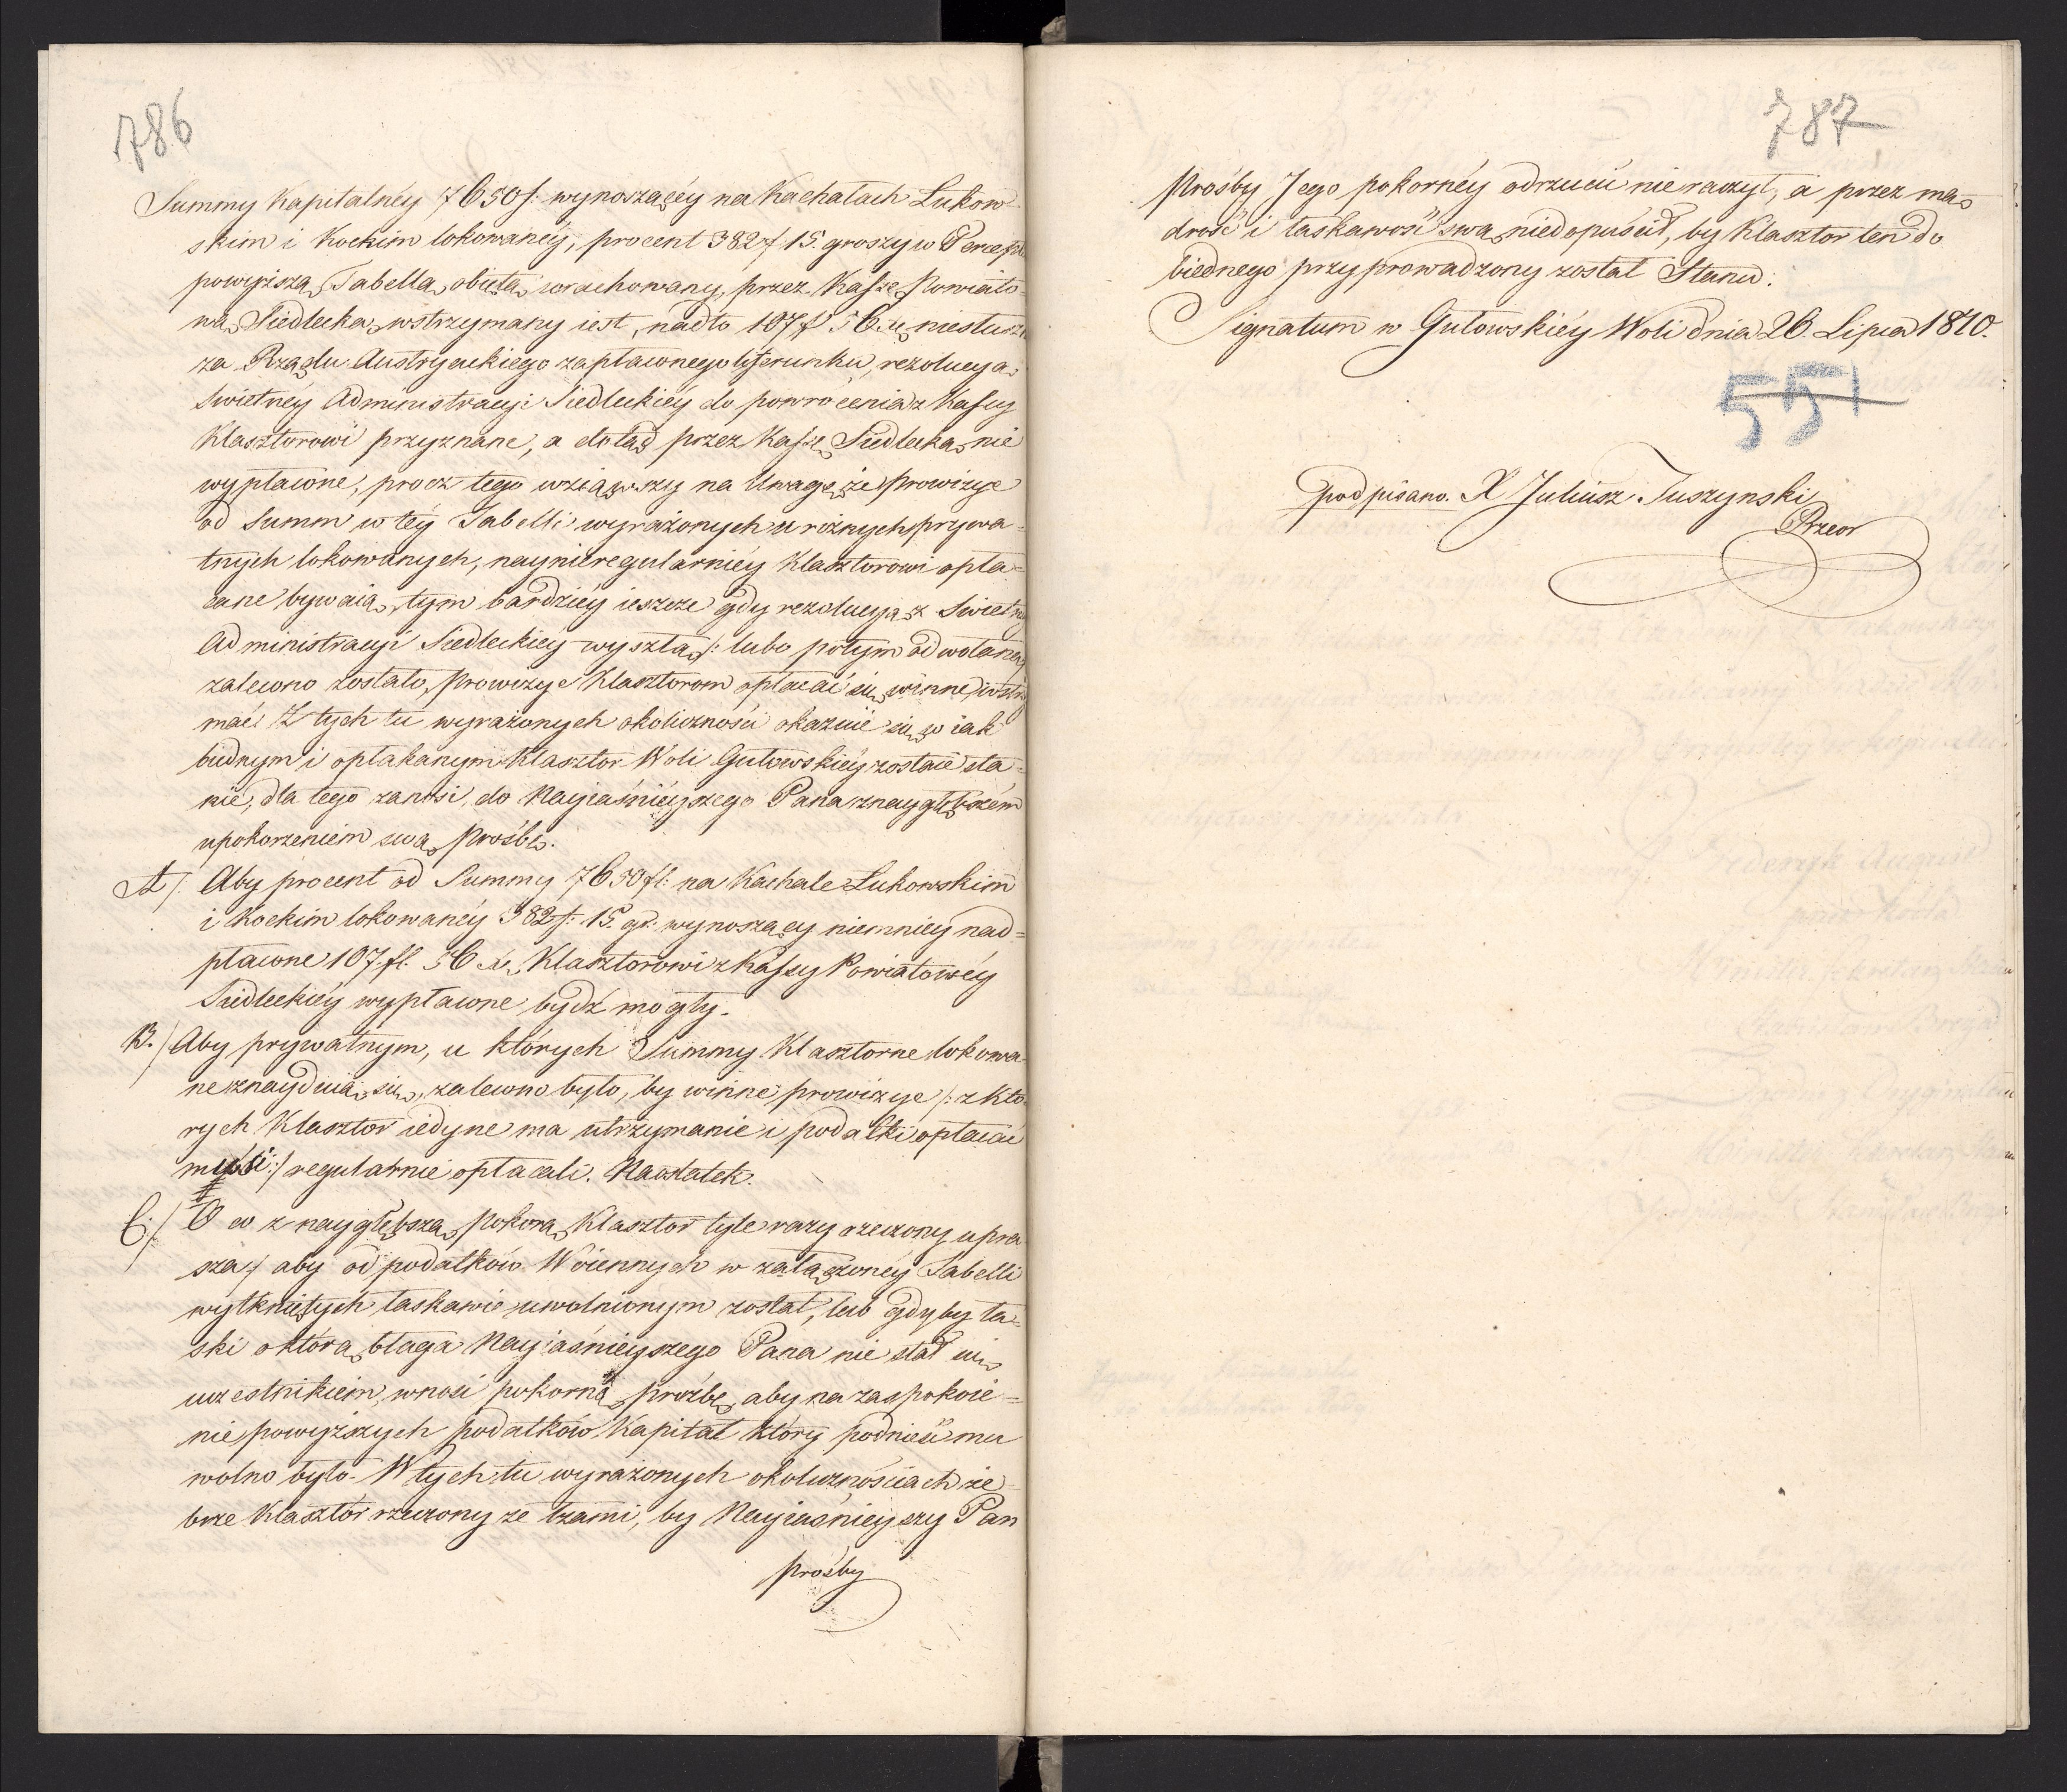 786
Summy Kapitalnéy 7650f: wynoszącéy na Kachałach Łukow-
skim i Kockim lokowanéy, procent 382f 15. groszy w
powyższą Tabellą obięta wrachowany, przez Kassę Powiato-
wą Siedlecką wstrzymany iest, nadto 107f 56 x
za Rządu Austryackiego zapłaconego liferunku, rezolucyą
Swietnéy Administracyi Siedleckiéy do powrócenia z Kassy
Klasztorowi przyznane, a dotąd przez Kassę Siedlecką nie
wypłacone, procz tego wziąwszy na Uwagę że prowizye
od Summ w téy Tabelli wyrażonych u rożnych prywa-
tnych lokowanych, naynieregularniéy Klasztorowi opła-
cane bywaią, tym bardziéy ieszcze gdy rezolucya z
Administracyi Siedleckiéy wyszła /: lubo potym odwołana
zalecono zostało, prowizye Klasztorom opłacać się winne,
mać: Z tych tu wyrażonych okoliczności okazuie się w iak
biednym i opłakanym Klasztor Woli Gułowskiéy zostaie sta-
nie, dla tego zanosi do Nayiaśnieyszego Pana z naygłębszém
upokorzeniem swą prośbę.
A/. Aby procent od Summy 7650fl: na Kachale Łukowskim
i Kockim lokowanéy 382f: 15. gr: wynoszący niemniéy nad-
płacone 107.fl. 56 x, Klasztorowi z Kassy Powiatowéy
Siedleckiéy wypłacone bydź mogły.
B./ Aby prywatnym, u których Summy Klasztorne lokowa-
ne znayduią się, zalecono było, by winne prowizye /: z kto-
rych Klasztor iedyne ma utrzymanie i podatki opłacać
musi :/ regularnie opłacali. Naostatek.
C./ O co z naygłębszą pokorą Klasztor tyle razy rzeczony upra-
sza, aby od podatków Woiennych w załączonéy Tabelli
wytkniętych łaskawie uwolnionym został, lub gdyby ła-
ski o którą błaga Nayiaśnieyszego Pana nie stał się
uczestnikiem, wnosi pokorną prozbę, aby na zaspokoie-
nie powyższych podatków Kapitał ktory podnieść mu
wolno było. W tych tu wyrażonych okolicznościach że-
brze Klasztor rzeczony ze łzami, by Nayiaśnieyszy Pan
prośby
787
prośby Jego pokornéy odrzucić nie raczył, a przez mą-
drość i łaskawość swą niedopuścił, by Klasztor ten do
biednego przyprowadzony został Stanu.
Signatum w Gułowskiéy Woli dnia 26. Lipca 1810.
551
podpisano. X Juliusz Tuszynski
Przeor